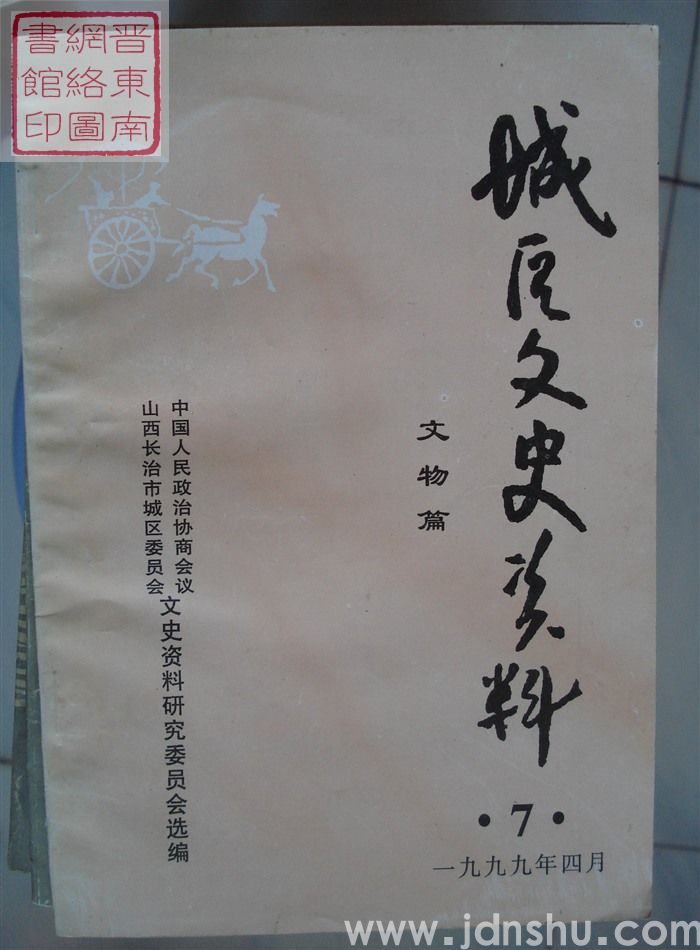 晋東南
網絡圖
書館印
城区文史资料
文物篇
中国人民政治协商会议
山西长治市城区委员会
文史资料研究委员会选编
·7·
一九九九年四月
www.jdnshu.com